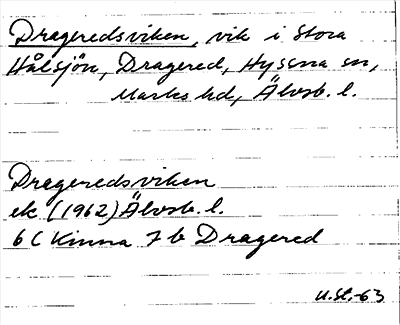 Drageredsviken, vik i Stora
Hålsjön, Dragered, Hyssna sn,
Marks hd, Älvsb. l.
Drageredsviken
ek (1962) Älvsb. l.
6 C Kinna 7 b Dragered
U.St.-63